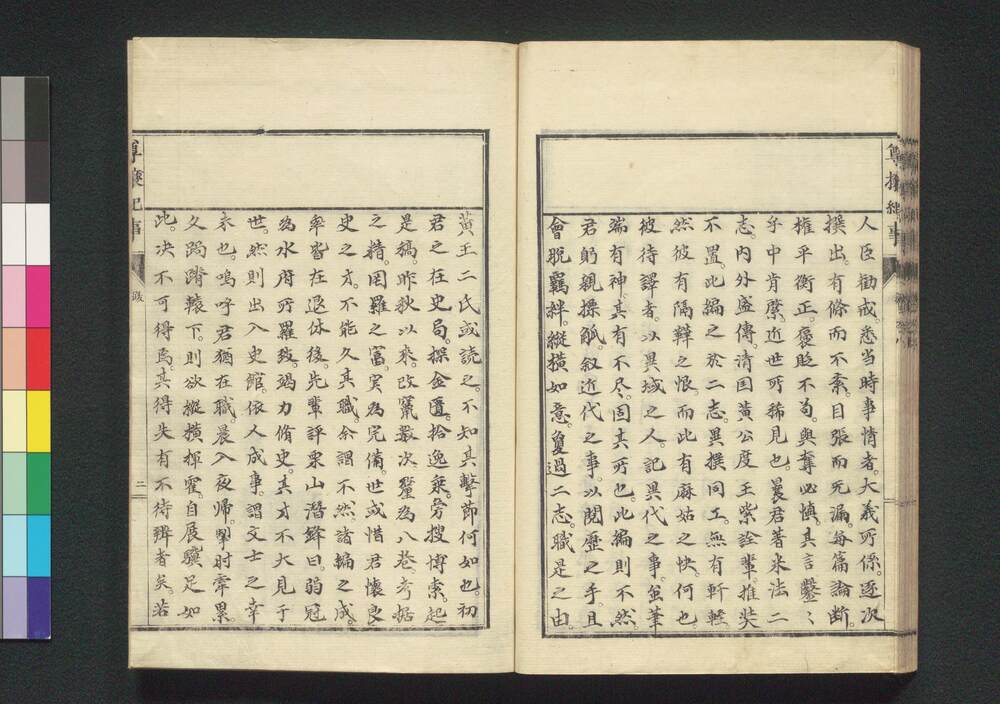 尊攘紀事
人臣勸戒。悉当時事情者。大義所係。逐次
撰出。有條而不紊。目張而无漏。每篇論斷。
権平衡正。褒貶不苟。與奪必慎。其言鑿〻
乎中肯綮。近世所稀見也。曩君著米法二
志。内外盛傳。清国黄公度王紫詮輩。推奘
不置。此編之於二志。異撰同工。無有軒輊
然彼有隔鞾之恨。而此有麻姑之快。何也
彼待譯者。以異域之人。記異代之事。負筆
端有神。其有不尽。固其所也。此編則不然
君躬親操觚。叙近代之事。以閲歴之手。且
會脱羈絆。縦横如意。敻過二志。職是之由。
黄王二氏或読之。不知其擊節何如也。初
君之在史局。探金匱。拾逸乗。旁搜博索。起
是稿。昨秋以来。改竄数次。釐為八巻。考拠
之精。网羅之富。实為完備。世或惜君懐良
史之才。不能久其職。余謂不然。諸編之成。
率皆在退休後。先輩評栗山潜鋒曰。弱冠
為水府所羅致。竭力脩史。其才不大見于
世。然則出入史館。依人成事。謂文士之幸
未也。嗚呼君猶在職。晨入夜帰。掣肘牽累。
久跼蹐轅下。則欲縦横揮霍。自展驥足如
此。决不可得焉。其得失有不待辨者矣。若
尊攘紀事
跋
二